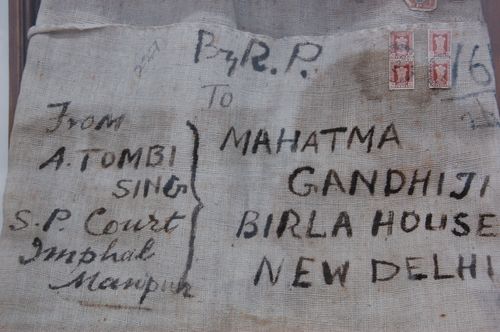 By R.P.
To
MAHATMA
GANDHIJI
BIRLA HOUSE
NEW DELHI
From
A. TOMBI
SING
S.P. Court
Imphal
Manipur
16